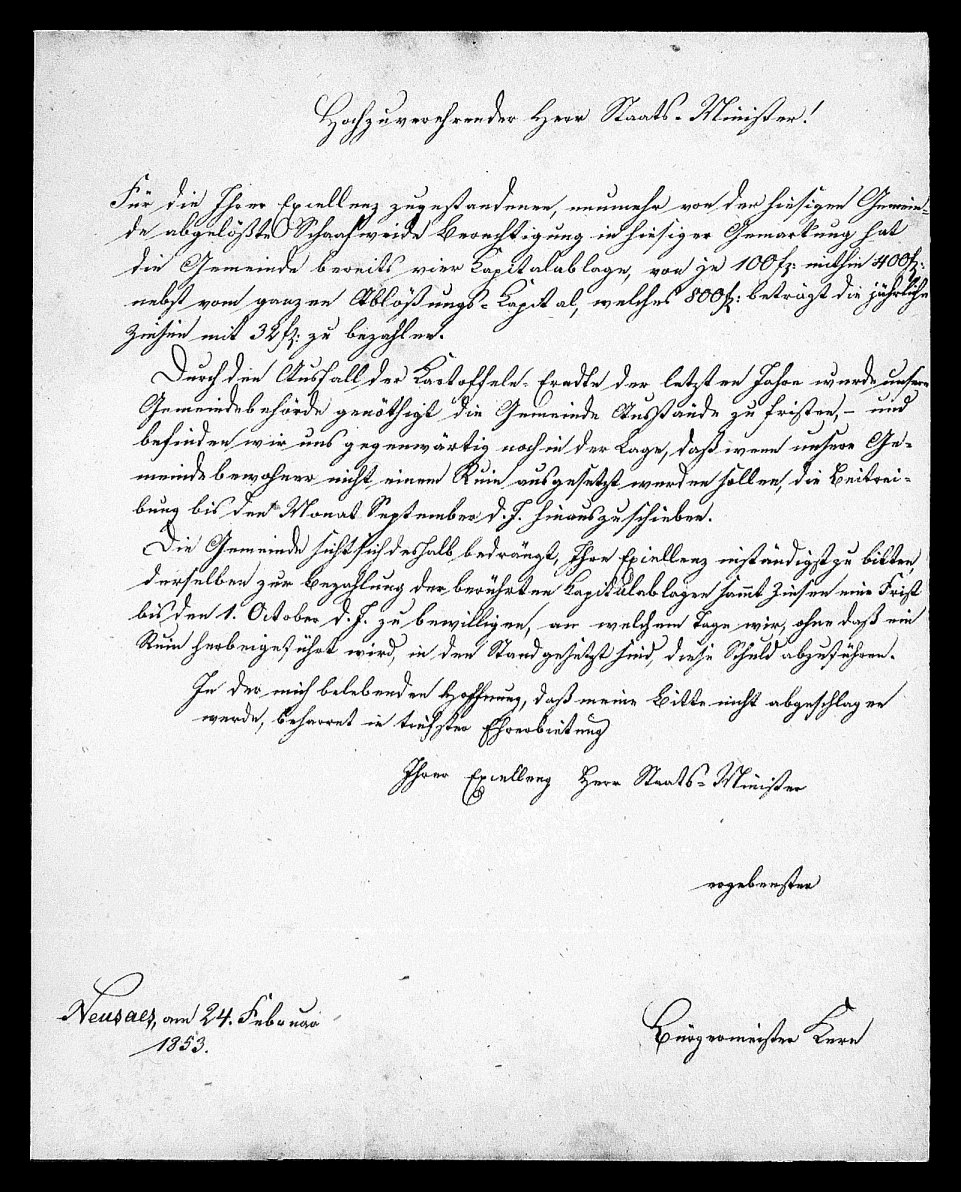 Hochzuverehrender Herr Staats-Minister!
Für die Ihrer Excellenz zugestandenen, nunmehr von der hiesigen Gemein-
de abgelößte Schaafweide Berechtigung in hiesiger Gemarkung hat
die Gemeinde bereits vier Kapitalablage, von je 100 fl: mithin 400 fl:
nebst vom ganzen Ablößungs-Kapital, welches 800 fl: beträgt die jährliche
Zinsen mit 32 fl: zu bezahlen.
Durch den Ausfall der Kartoffeln-Erndte der letzten Jahre wurde unsere
Gemeindebehörde genöthigt die Gemeinde Ausstände zu fristen, – und
befinden wir uns gegenwärtig noch in der Lage, daß wenn unsere Ge-
meindebewohner nicht einem Ruin ausgesetzt werden sollen, die Beitrei-
bung bis den Monat September d. J. hinauszuschieben.
Die Gemeinde sieht sich deshalb bedrängt, Ihre Excellenz inständigst zu bitten,
derselben zur Bezahlung der berührten Kapitalablagen sammt Zinsen eine Frist
bis den 1. October d. J. zu bewilligen, an welchem Tage wir, ohne daß ein
Ruin herbeigeführt wird, in den Stand gesetzt sind, diese Schuld abzuführen.
In der mich belebenden Hoffnung, daß meine Bitte nicht abgeschlagen
werde, beharret in tiefster Ehrerbietung
Ihrer Excellenz Herr Staats-Minister
ergebenster
Neusaes, am 24. Februar
1853.
Bürgermeister Kern